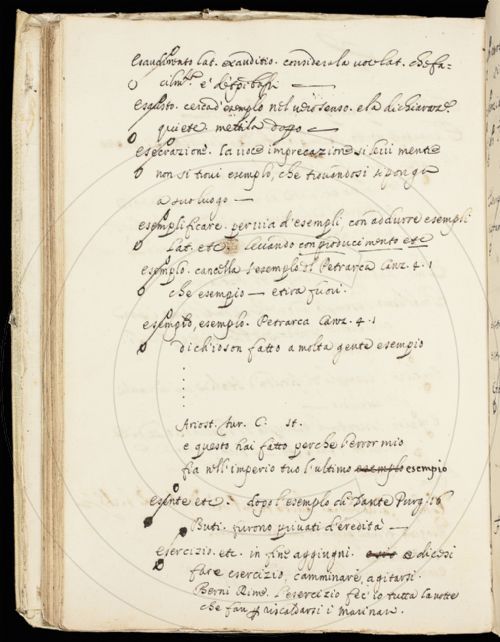 esaudimento lat. exauditio. considera la voce lat. che fa-
cilm.te è de tpi bassi —
esausto. cerca d'esempio nel 
quiete mettila dopo —
esecrazione. la voce imprecazione si levi mentre
non si trovi esempio, che trovandosi si ponga
a suo luogo —
esemplificare. per via d'esempli, con addurre esempli
lat. etc. levando con produci mento etc
esemplo. cancella l'esempio del Petrarca Canz. 4. 1
che esempio — e tira fuori.
esempio, esemplo. Petrarca Canz. 4. 1
di ch'io son fatto a molta gente esempio
Ariost. fur. C. st.
e questo hai fatto perche l'error mio
fia nell'imperio tuo l'ultimo esemplo esempio
esente etc. dopo l'esempio di Dante Purg. 16
Buti. furono privati d'eredità —
esercizio. etc. in fine aggiugni. e dicesi
fare esercizio, camminare, agitarsi.
Berni Rime. l'esercizio fei io tutta la notte
che fan p riscaldarsi i marinari.